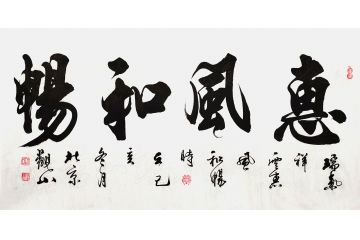 惠風和暢
瑞氣
祥
雲惠
風
和暢
時
在己
亥
冬月
北京
觀山